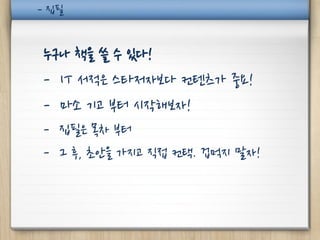 - 집필
누구나 책을 쓸 수 있다!
- IT 서적은 스타저자보다 컨텐츠가 중요!
- 마소 기고 부터 시작해보자!
- 집필은 목차 부터
- 그 후, 초안을 가지고 직접 컨택. 겁먹지 말자!